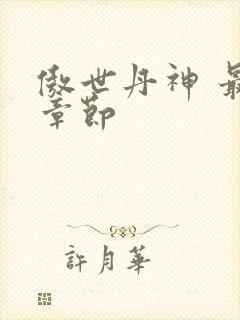 傲世丹神 最
章節
許月華